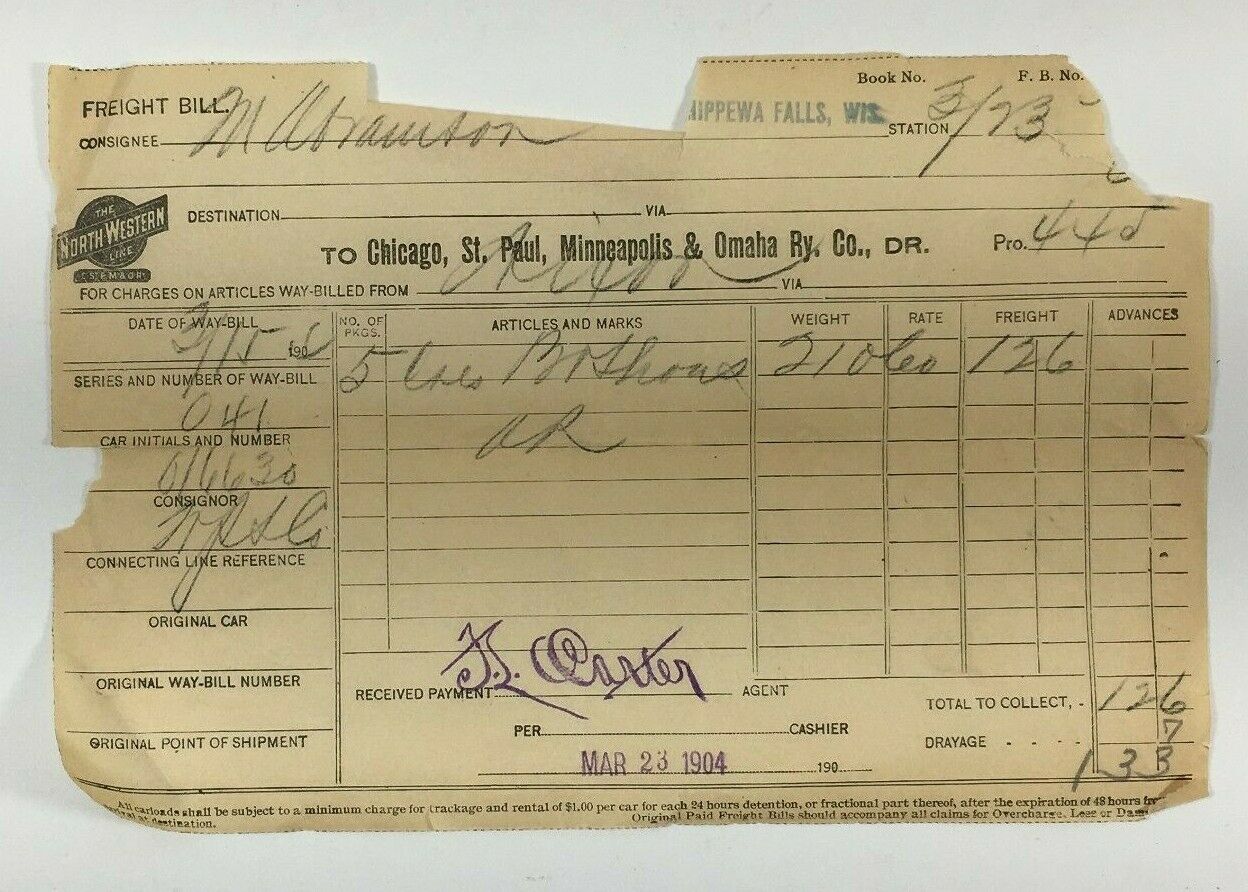 Book No. F. B. No.
FREIGHT BILL.
CONSIGNEE M Abramson
HIPPEWA FALLS, WIS. STATION 3/23
THE NORTH WESTERN LINE
DESTINATION VIA
TO Chicago, St. Paul, Minneapolis & Omaha Ry. Co., DR. Pro. 445
FOR CHARGES ON ARTICLES WAY-BILLED FROM VIA
DATE OF WAY-BILL NO. OF PKGS. ARTICLES AND MARKS WEIGHT RATE FREIGHT ADVANCES
3/15 190 5 210 60 126
SERIES AND NUMBER OF WAY-BILL
041
OR
CAR INITIALS AND NUMBER
016630
CONSIGNOR
CONNECTING LINE REFERENCE
ORIGINAL CAR
ORIGINAL WAY-BILL NUMBER
RECEIVED PAYMENT Carter AGENT
TOTAL TO COLLECT, - 126
PER CASHIER
ORIGINAL POINT OF SHIPMENT
DRAYAGE - - - - 7
MAR 23 1904 190
133
All carloads shall be subject to a minimum charge for trackage and rental of $1.00 per car for each 24 hours detention, or fractional part thereof, after the expiration of 48 hours
at destination. Original Paid Freight Bills should accompany all claims for Overcharge, Loss or Dam